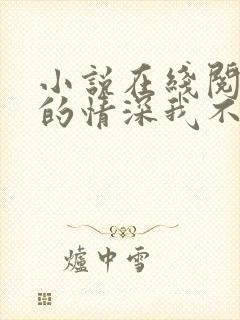 小説在綫閱
的情深我不
爐中雪